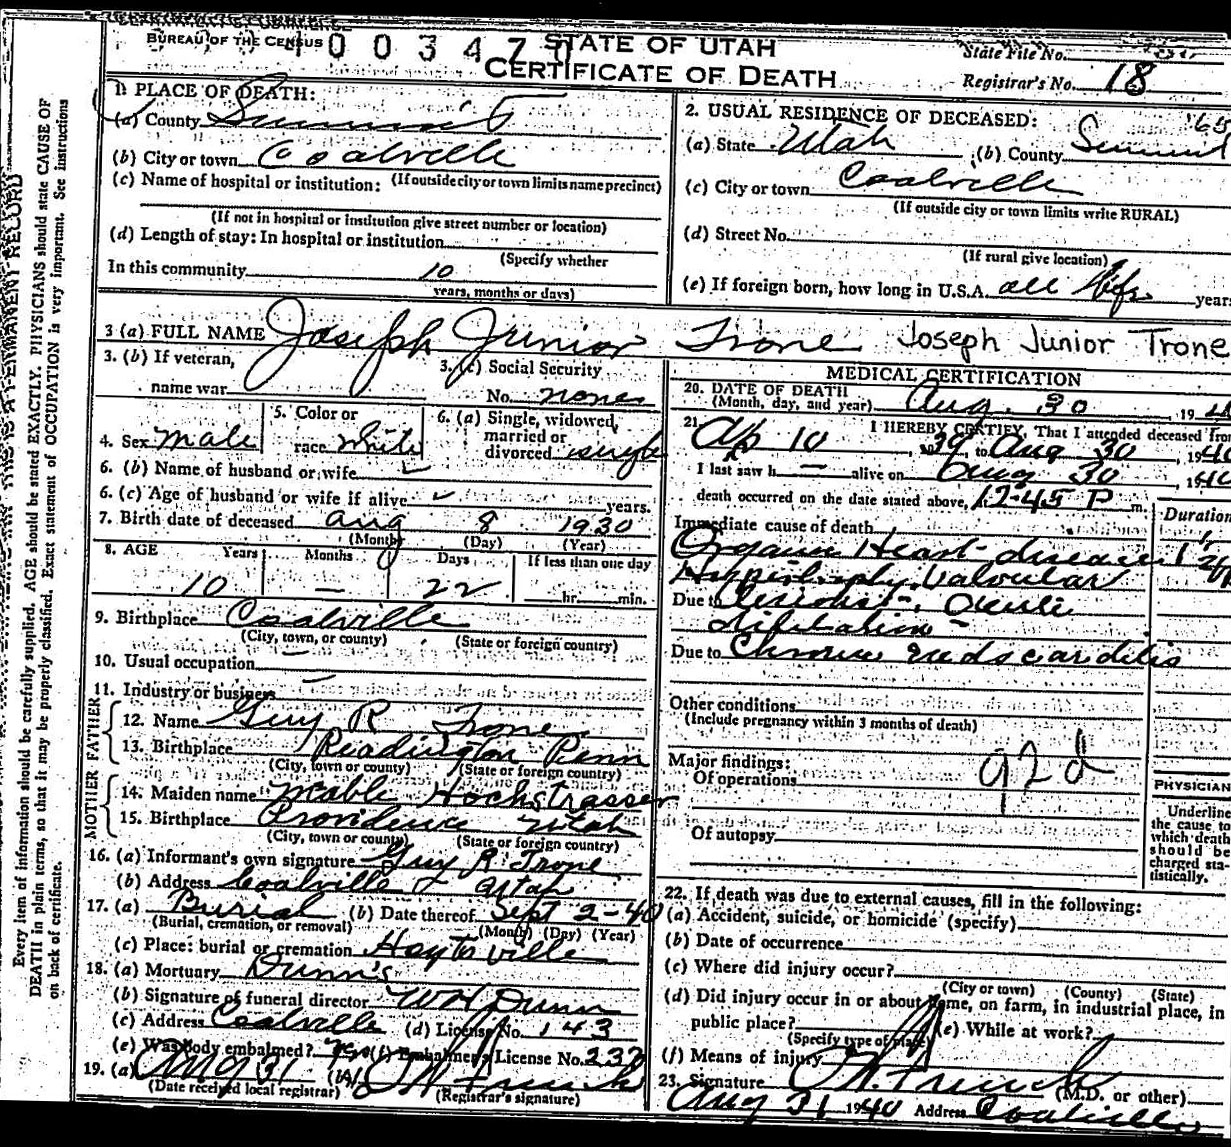 BUREAU OF THE CENSUS 0 0 3 4 7
STATE OF UTAH
CERTIFICATE OF DEATH
State File No.
Registrar's No. 18
Every item of information should be carefully supplied. AGE should be stated EXACTLY. PHYSICIANS should state CAUSE OF
DEATH in plain terms, so that it may be properly classified. Exact statement of OCCUPATION is very important. See instructions
on back of certificate.
1. PLACE OF DEATH:
(a) County Summit
(b) City or town Coalville
(c) Name of hospital or institution: (If outside city or town limits name precinct)
(If not in hospital or institution give street number or location)
(d) Length of stay: In hospital or institution
(Specify whether
In this community 10
years, months or days)
2. USUAL RESIDENCE OF DECEASED: '65
(a) State Utah (b) County Summit
(c) City or town Coalville
(If outside city or town limits write RURAL)
(d) Street No.
(If rural give location)
(e) If foreign born, how long in U.S.A. all life years
3 (a) FULL NAME Joseph Junior Trone Joseph Junior Trone
3. (b) If veteran,
name war
3. (c) Social Security
No. none
4. Sex male
5. Color or
race white
6. (a) Single, widowed,
married or
divorced single
6. (b) Name of husband or wife
6. (c) Age of husband or wife if alive years.
7. Birth date of deceased Aug 8 1930
(Month) (Day) (Year)
8. AGE Years Months Days If less than one day
10 — 22 hr. min.
9. Birthplace Coalville
(City, town, or county) (State or foreign country)
10. Usual occupation —
11. Industry or business —
FATHER
12. Name Guy R Trone
13. Birthplace Readington Penn
(City, town or county) (State or foreign country)
MOTHER
14. Maiden name Mable Hochstrasser
15. Birthplace Providence Utah
(City, town or county) (State or foreign country)
16. (a) Informant's own signature Guy R Trone
(b) Address Coalville Utah
17. (a) Burial (b) Date thereof Sept 2-40
(Burial, cremation, or removal) (Month) (Day) (Year)
(c) Place: burial or cremation Hoytsville
18. (a) Mortuary Dunn's
(b) Signature of funeral director W H Dunn
(c) Address Coalville (d) License No. 143
(e) Was body embalmed? yes (f) Embalmer's License No. 233
19. (a) Aug 31 (b)
(Date received local registrar) (Registrar's signature)
MEDICAL CERTIFICATION
20. DATE OF DEATH
(Month, day, and year) Aug. 30, 1940
21. I HEREBY CERTIFY, That I attended deceased from
Ap 10, 39, to Aug 30, 1940
I last saw h — alive on Aug 30, 1940
death occurred on the date stated above, 12-45 P m.
Duration
Immediate cause of death
Organic Heart disease 1 1/2
Hypertrophy, Valvular
Due to lesions - Acute
dilitation -
Due to Chronic Endocarditis
Other conditions
(Include pregnancy within 3 months of death)
Major findings:
Of operations 92d
Of autopsy
PHYSICIAN
Underline
the cause to
which death
should be
charged sta-
tistically.
22. If death was due to external causes, fill in the following:
(a) Accident, suicide, or homicide (specify)
(b) Date of occurrence
(c) Where did injury occur?
(City or town) (County) (State)
(d) Did injury occur in or about home, on farm, in industrial place, in
public place? (e) While at work?
(Specify type of place)
(f) Means of injury
23. Signature (M.D. or other)
Aug 31 1940 Address Coalville